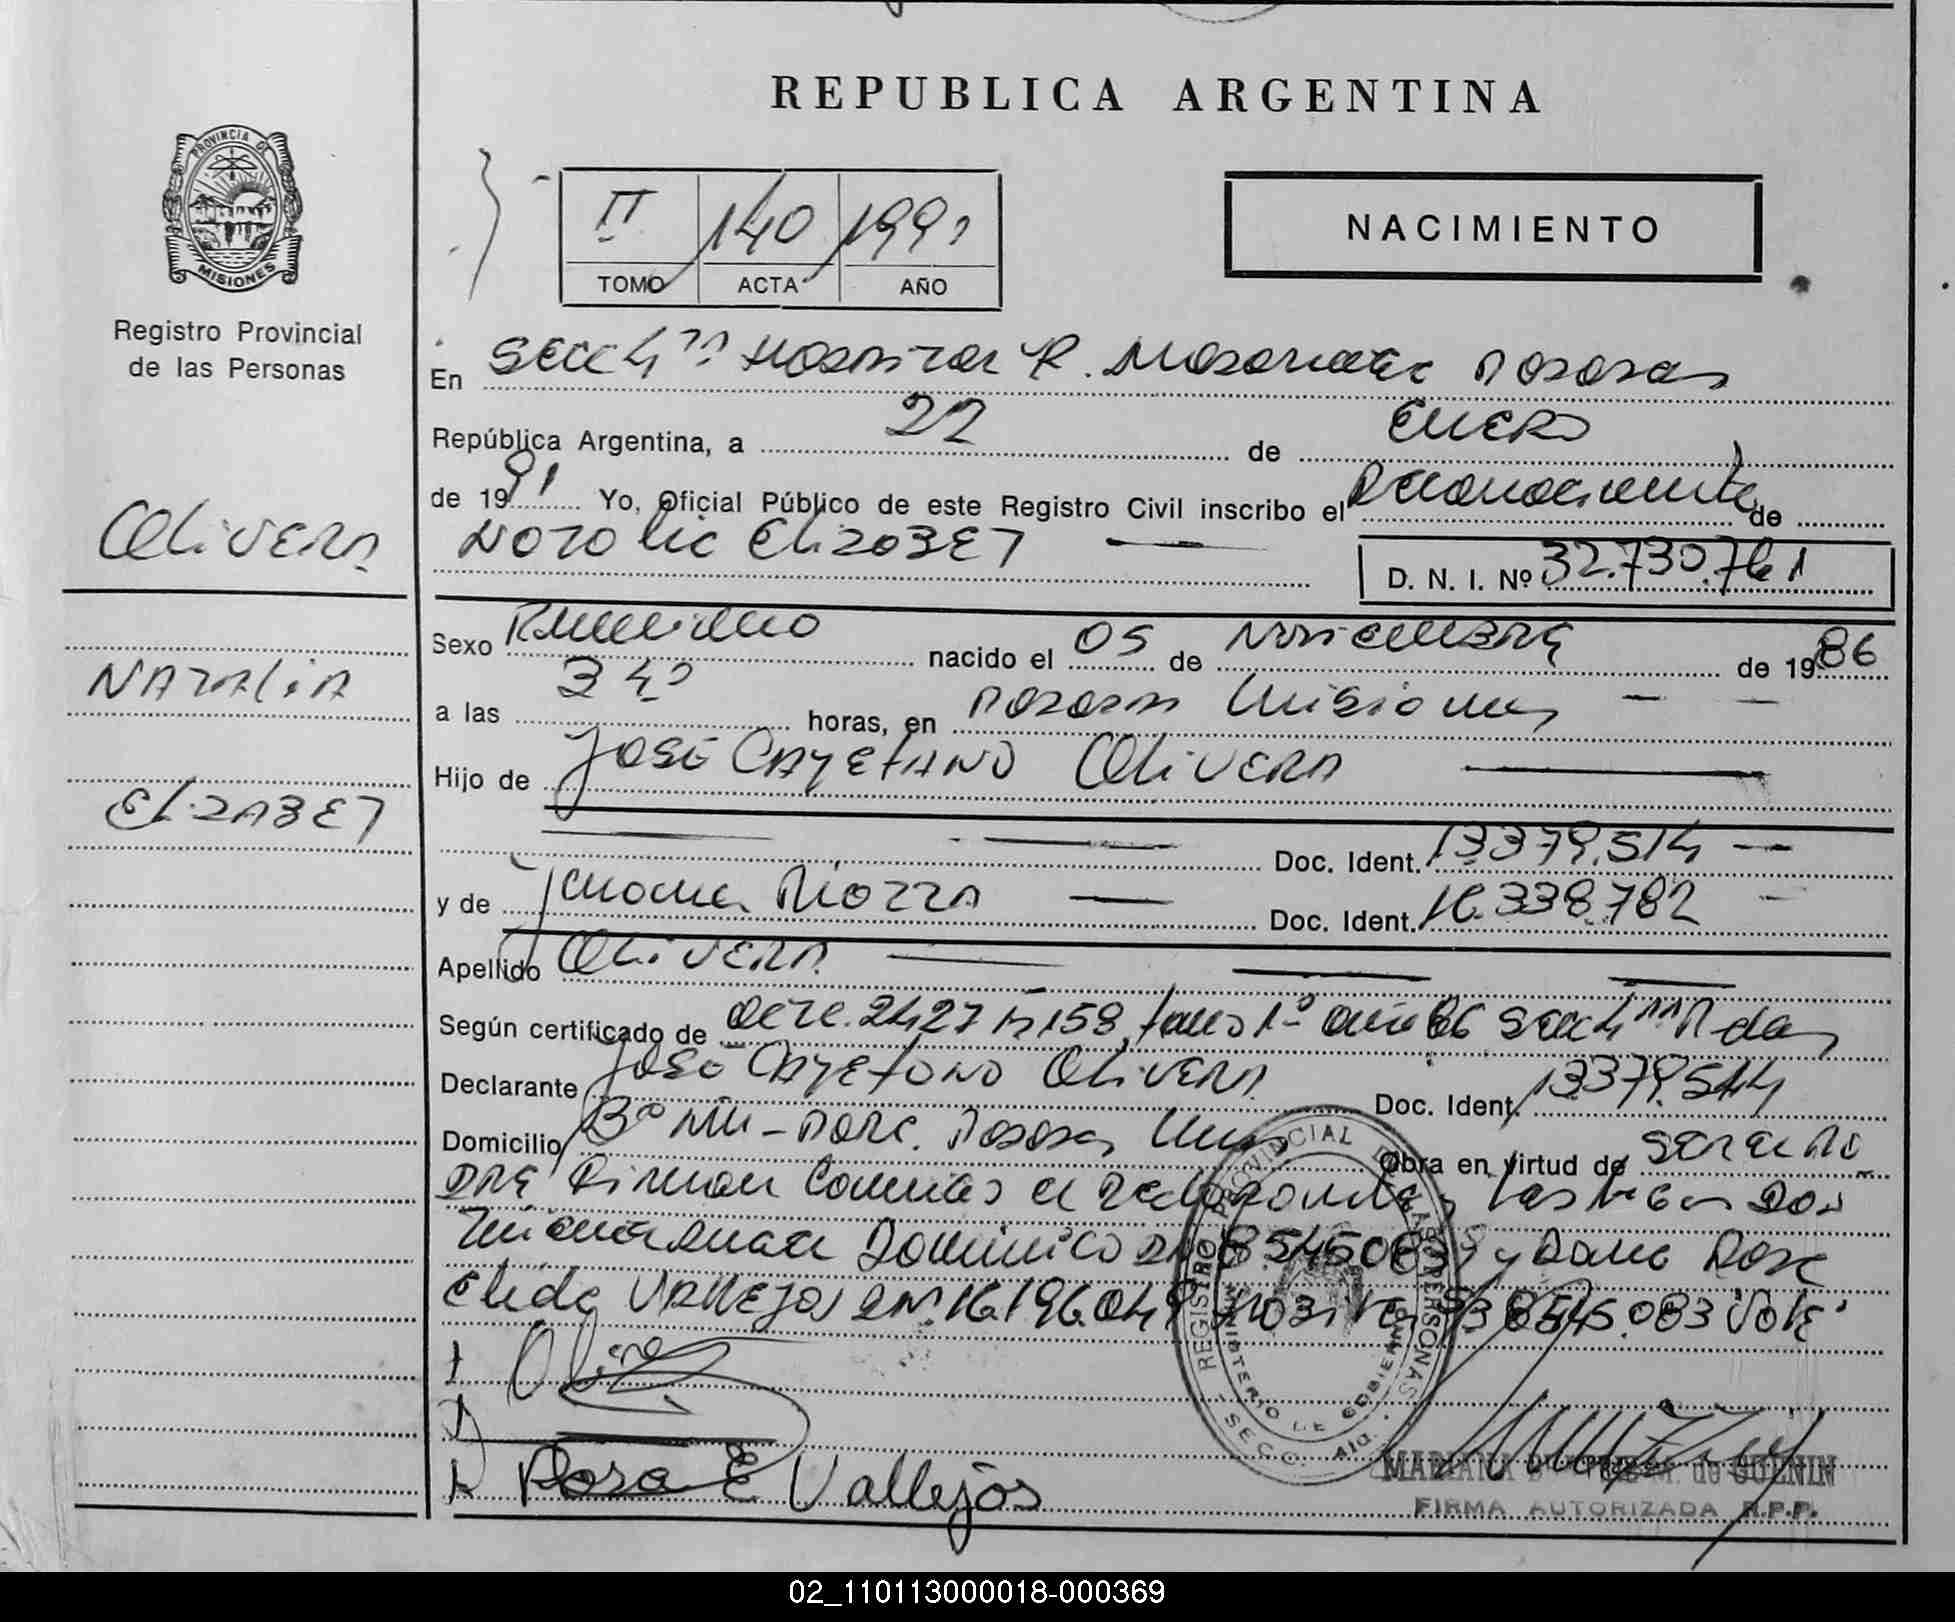 REPUBLICA ARGENTINA
PROVINCIA DE MISIONES
Registro Provincial
de las Personas
II 140 1991
TOMO ACTA AÑO
NACIMIENTO
En Secc 4ta Hospital R. Madariaga Posadas
República Argentina, a 22 de Enero
de 1991 Yo, Oficial Público de este Registro Civil inscribo el Reconocimiento de
Natalia Elizabet D. N. I. Nº 32.730.761
OLIVERA
NATALIA
ELIZABET
Sexo Femenino nacido el 05 de Noviembre de 1986
a las horas, en Posadas Misiones
Hijo de José CAYETANO OLIVERA
Doc. Ident. 13.379.514
y de Doc. Ident. 16.338.782
Apellido OLIVERA
Según certificado de Acta 2427 Fº 158 Tomo 1º año 86 Secc 4ta Pdas
Declarante José CAYETANO OLIVERA Doc. Ident. 13.379.514
Domicilio Bº Posadas Mnes Obra en virtud de ser el padre
que firman conmigo el declarante y testigos Don
Dominico y Doña Rosa
Elida VALLEJOS DNI 16.196.049
Rosa E Vallejos
REGISTRO PROVINCIAL DE LAS PERSONAS
MINISTERIO DE GOBIERNO
FIRMA AUTORIZADA R.P.P.
02_110113000018-000369